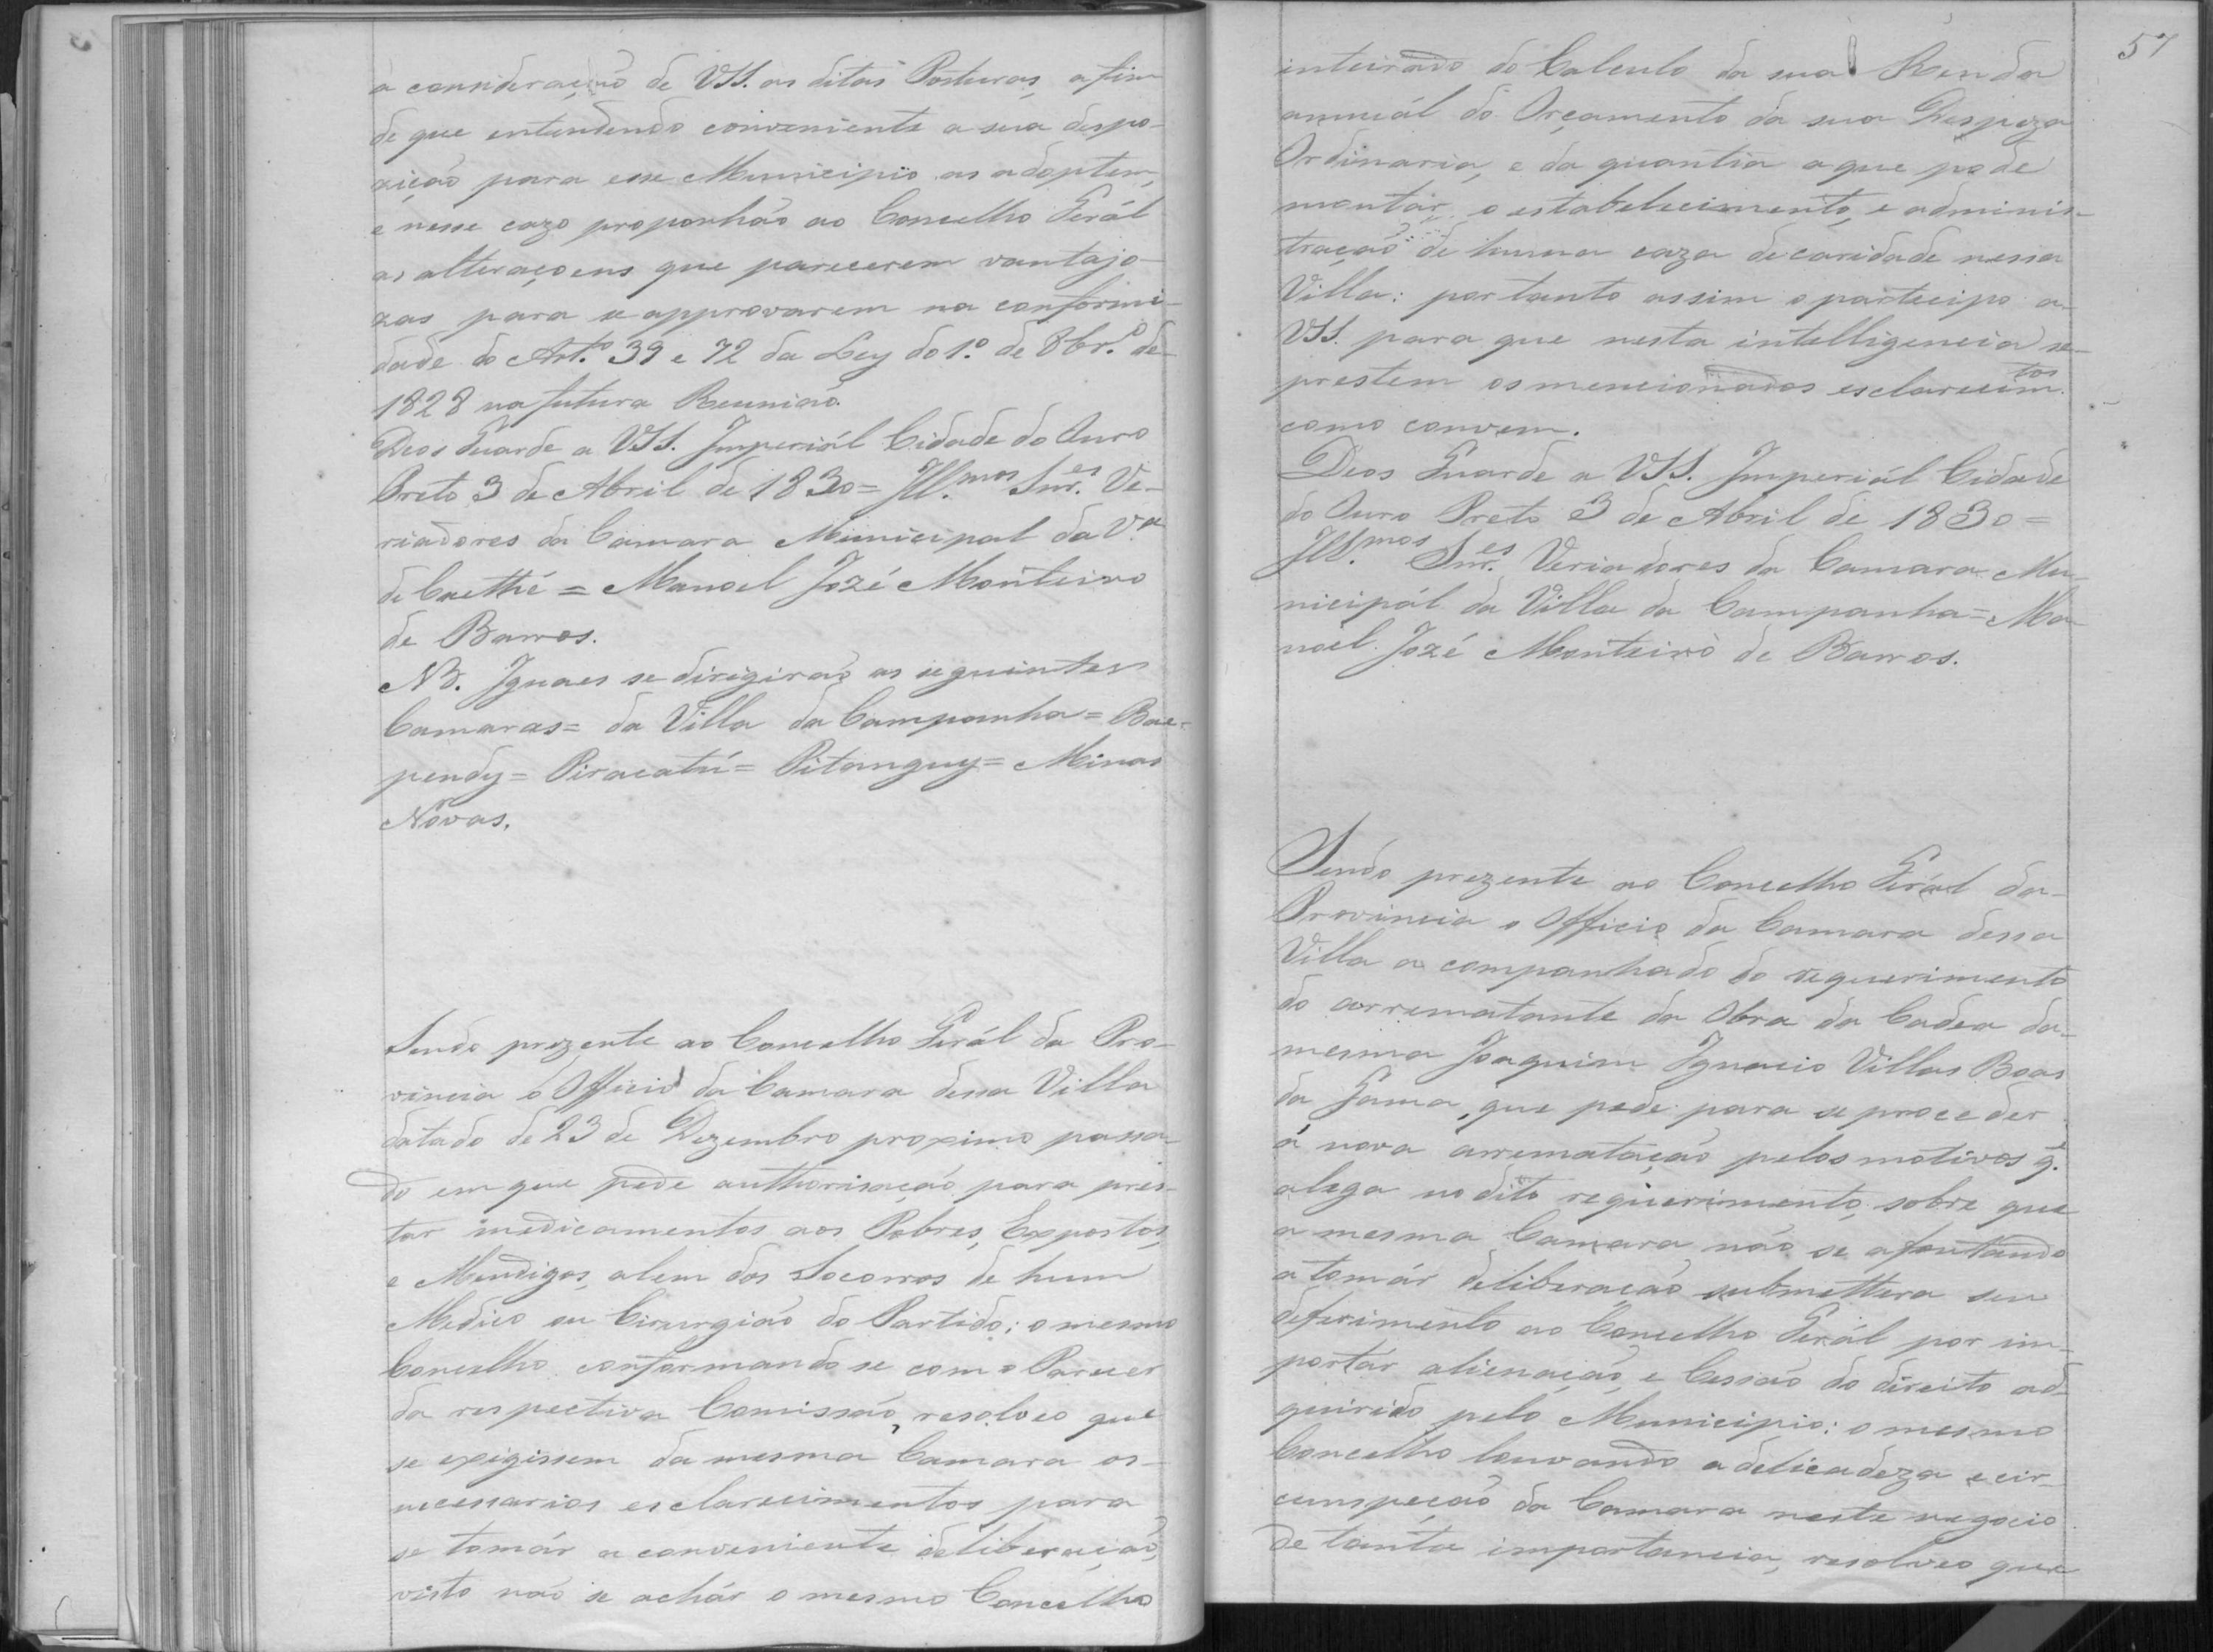 á consideração de VSS. as ditas Posturas, afim
de que entendendo conveniente a sua despo-
zição para esse Municipio as adoptem,
e nesse cazo proponhão ao Concelho Gerál
as alteraçoens que parecerem vantajo-
zas para se approvarem na conformi-
dade do Art.º 39 e 72 da Ley do 1.º de 8br.º de
1828 na futura Reunião.
Deos Guarde a VSS. Imperiál Cidade do Ouro
Preto 3 de Abril de 1830 = Ill.mos Snr.es Ve-
riadores da Camara Municipal da V.a
de Caethé = Manoel Jozé Monteiro
de Barros.
NB. Iguaes se dirigirão as seguintes
Camaras = da Villa da Campanha = Bae-
pendy = Piracatú = Pitanguy = Minas
Novas.
Sendo prezente ao Concelho Gerál da Pro-
vincia o Officio da Camara dessa Villa
datado de 23 de Dezembro proximo passa-
do em que pede authorisação para pres-
tar medicamentos aos Pobres, Expostos,
e Mendigos, alem dos Socorros de hum
Medico ou Cirurgião do Partido; o mesmo
Concelho conformando se com o Parecer
da respectiva Comissão, resolveo que
se exigissem da mesma Camara os
necessarios esclarecimentos para
se tomár a conveniente deliberação,
visto não se achár o mesmo Concelho
57
inteirado do Calculo da sua Renda
annuál do Orçamento da sua Despeza
Ordinaria, e da quantia a que pode
montár o estabelecimento, e adminis-
tração de huma caza de caridade nessa
Villa: por tanto assim o participo a
VSS. para que nesta intelligencia se
prestem os mencionados esclarecim.tos
como convem.
Deos Guarde a VSS. Imperiál Cidade
do Ouro Preto 3 de Abril de 1830 =
Ill.mos Snr.es Veriadores da Camara Mu-
nicipál da Villa da Campanha = Ma-
noel Jozé Monteiro de Barros.
Sendo prezente ao Concelho Gerál da
Provincia o Officio da Camara dessa
Villa a companhado do requerimento
do arrematante da Obra da Cadea da
mesma Joaquim Ignacio Villas Boas
da Gama, que pede para se proceder
á nova arrematação pelos motivos q.e
alega no dito requerimento, sobre que
a mesma Camara não se afoutando
a tomár deliberação submettera seu
deferimento ao Concelho Gerál por im-
portár alienação, e Cessão do direito ad-
quirido pelo Municipio: o mesmo
Concelho louvando a delicadeza e cir-
cunspeção da Camara neste negocio
de tanta importancia, resolveo que